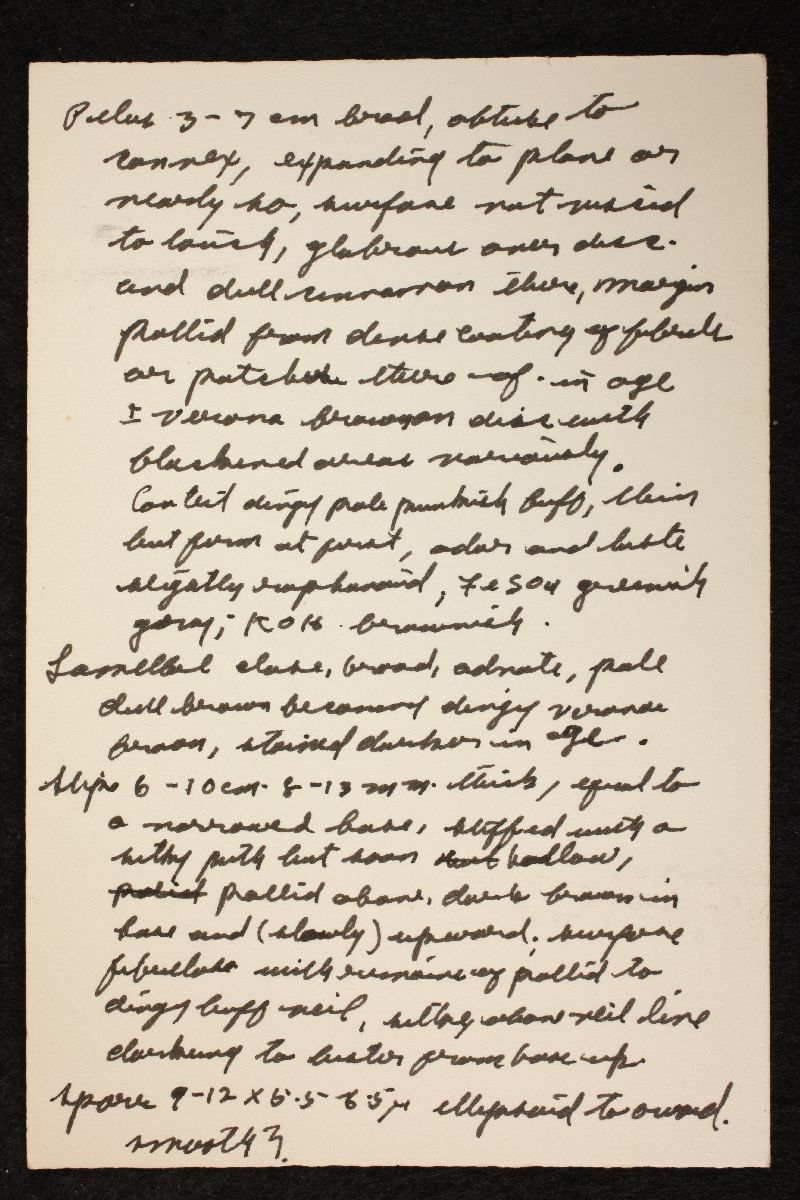 Pileus 3-7 cm broad, obtuse to
convex, expanding to plane or
nearly so, surface not viscid
to touch, glabrous over disc.
and dull cinnamon there, margin
pallid from dense coating of fibrils
or patches there-of. in age
± verona brown on disc with
blackened areas variously.
Context dingy pale pinkish buff, thin
but firm at first, odor and taste
slightly raphanoid, FeSO4 greenish
gray; KOH brownish.
Lamellae close, broad, adnate, pale
dull brown becoming dingy verona
brown, stained darker in age.
Stipe 6-10 cm. 8-13 mm. thick, equal to
a narrowed base, stuffed with a
silky pith but soon hollow,
pallid above, dark brown in
base and (slowly) upward; surface
fibrillose with remains of pallid to
dingy buff veil, silky above veil line
darkening to bister from base up.
Spores 9-12 X 5.5-6.5µ ellipsoid to ovoid.
smooth